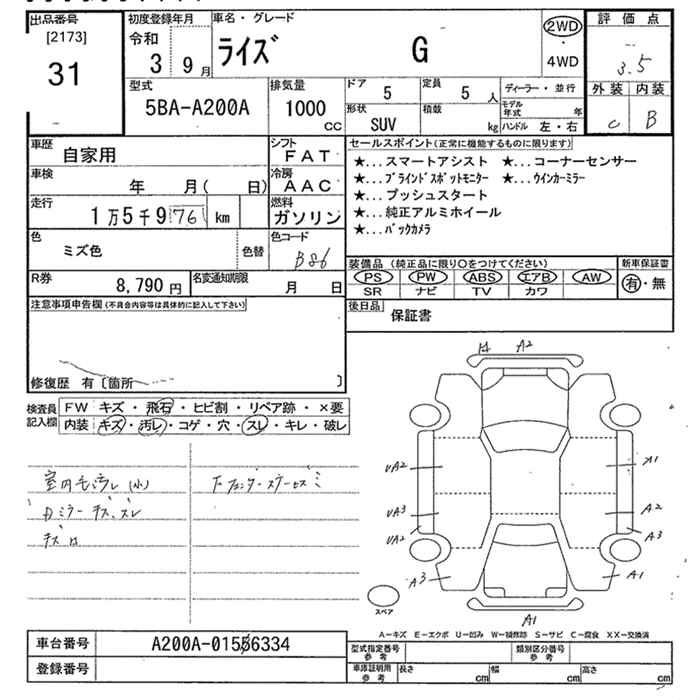 出品番号 初度登録年月 車名・グレード 評価点
[2173] 令和
31 3 9月 ライズ G 2WD・4WD 3.5
外装 内装
C B
型式 排気量 ドア 5 定員 5人 ディーラー・並行
5BA-A200A 1000cc 形状 SUV 積載 kg モデル年式 年
ハンドル 左・右
車歴 自家用 シフト FAT セールスポイント(正常に機能するものに限ります)
車検 年 月( 日) 冷房 AAC
★...スマートアシスト ★...コーナーセンサー
★...ブラインドスポットモニター ★...ウインカーミラー
★...プッシュスタート
★...純正アルミホイール
★...バックカメラ
走行 1万5千976km 燃料 ガソリン
色 ミズ色 色替 色コード B86
装備品(純正品に限り○をつけてください) 新車保証書
PS PW ABS エアB AW 有・無
SR ナビ TV カワ
R券 8,790円 名変通知期限 月 日
注意事項申告欄(不具合内容等は具体的に記入して下さい)
後日品 保証書
修復歴 有〔箇所 〕
検査員記入欄 FW キズ・飛石・ヒビ割・リペア跡・×要
内装 キズ・汚レ・コゲ・穴・スレ・キレ・破レ
A2
UA2 A1
UA3 A2
UA2 A3
A3 A1
A1
スペア
A-キズ E-エクボ U-凹み W-補修跡 S-サビ C-腐食 XX-交換済
車台番号 A200A-0156334
登録番号
型式指定番号 参考 類別区分番号 参考
車庫証明用 参考 長さ cm 幅 cm 高さ cm